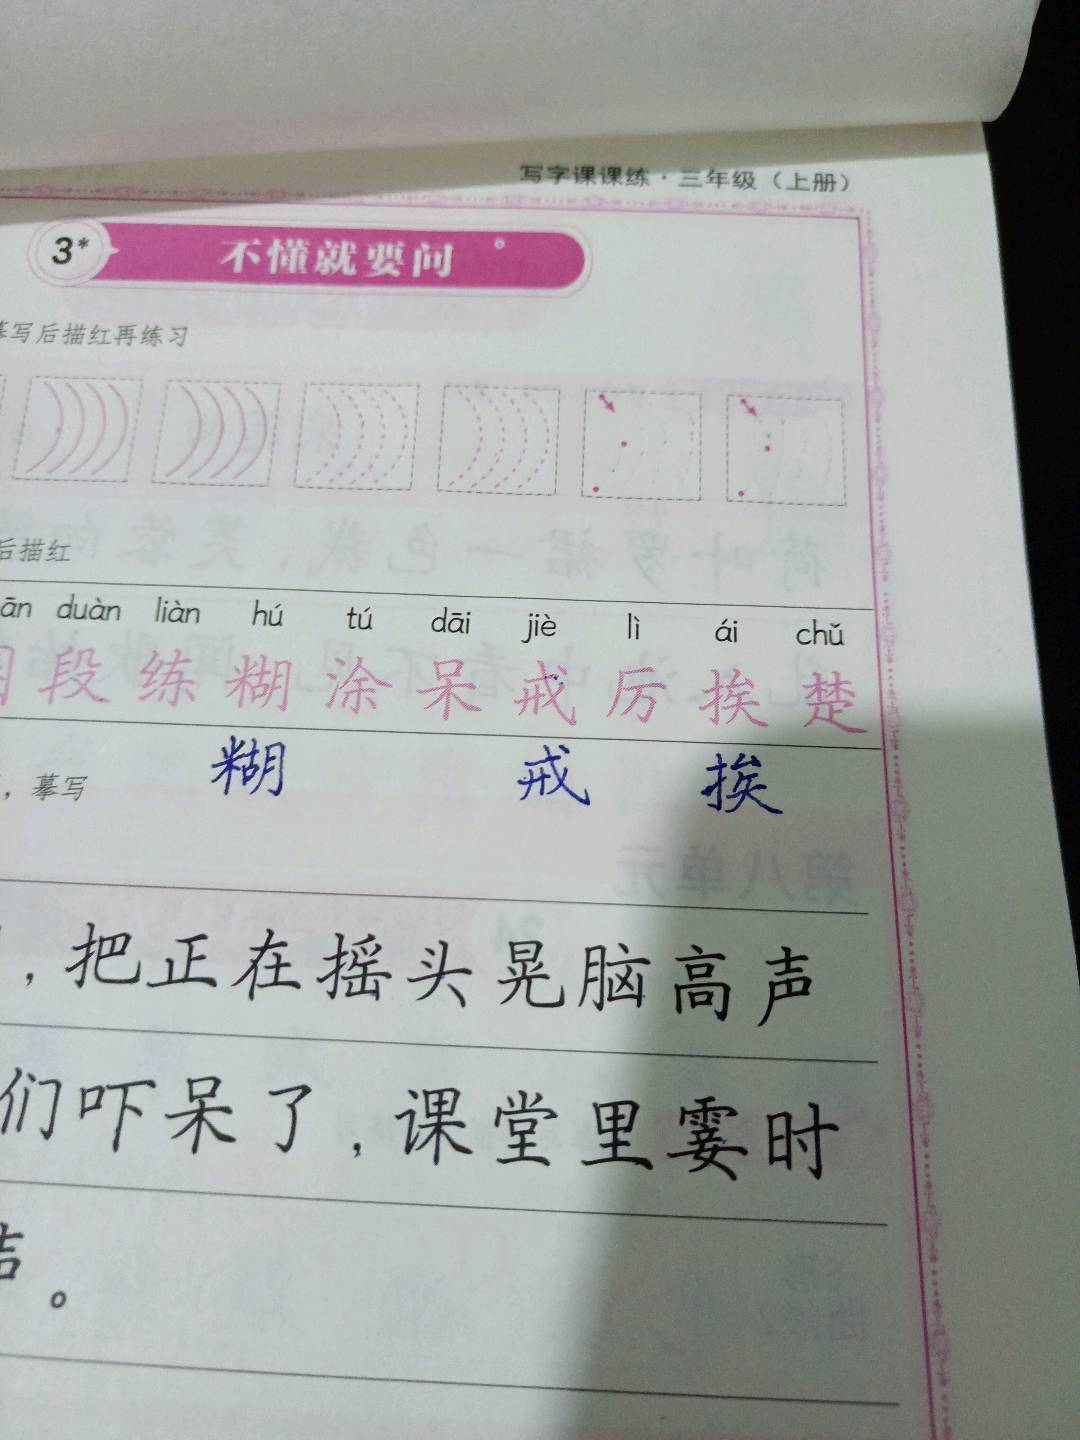 写字课课练·三年级（上册）
3* 不懂就要问
写后描红再练习
后描红
ān duàn liàn hú tú dāi jiè lì ái chǔ
段练糊涂呆戒厉挨楚
糊 戒 挨
，摹写
，把正在摇头晃脑高声
们吓呆了，课堂里霎时
。